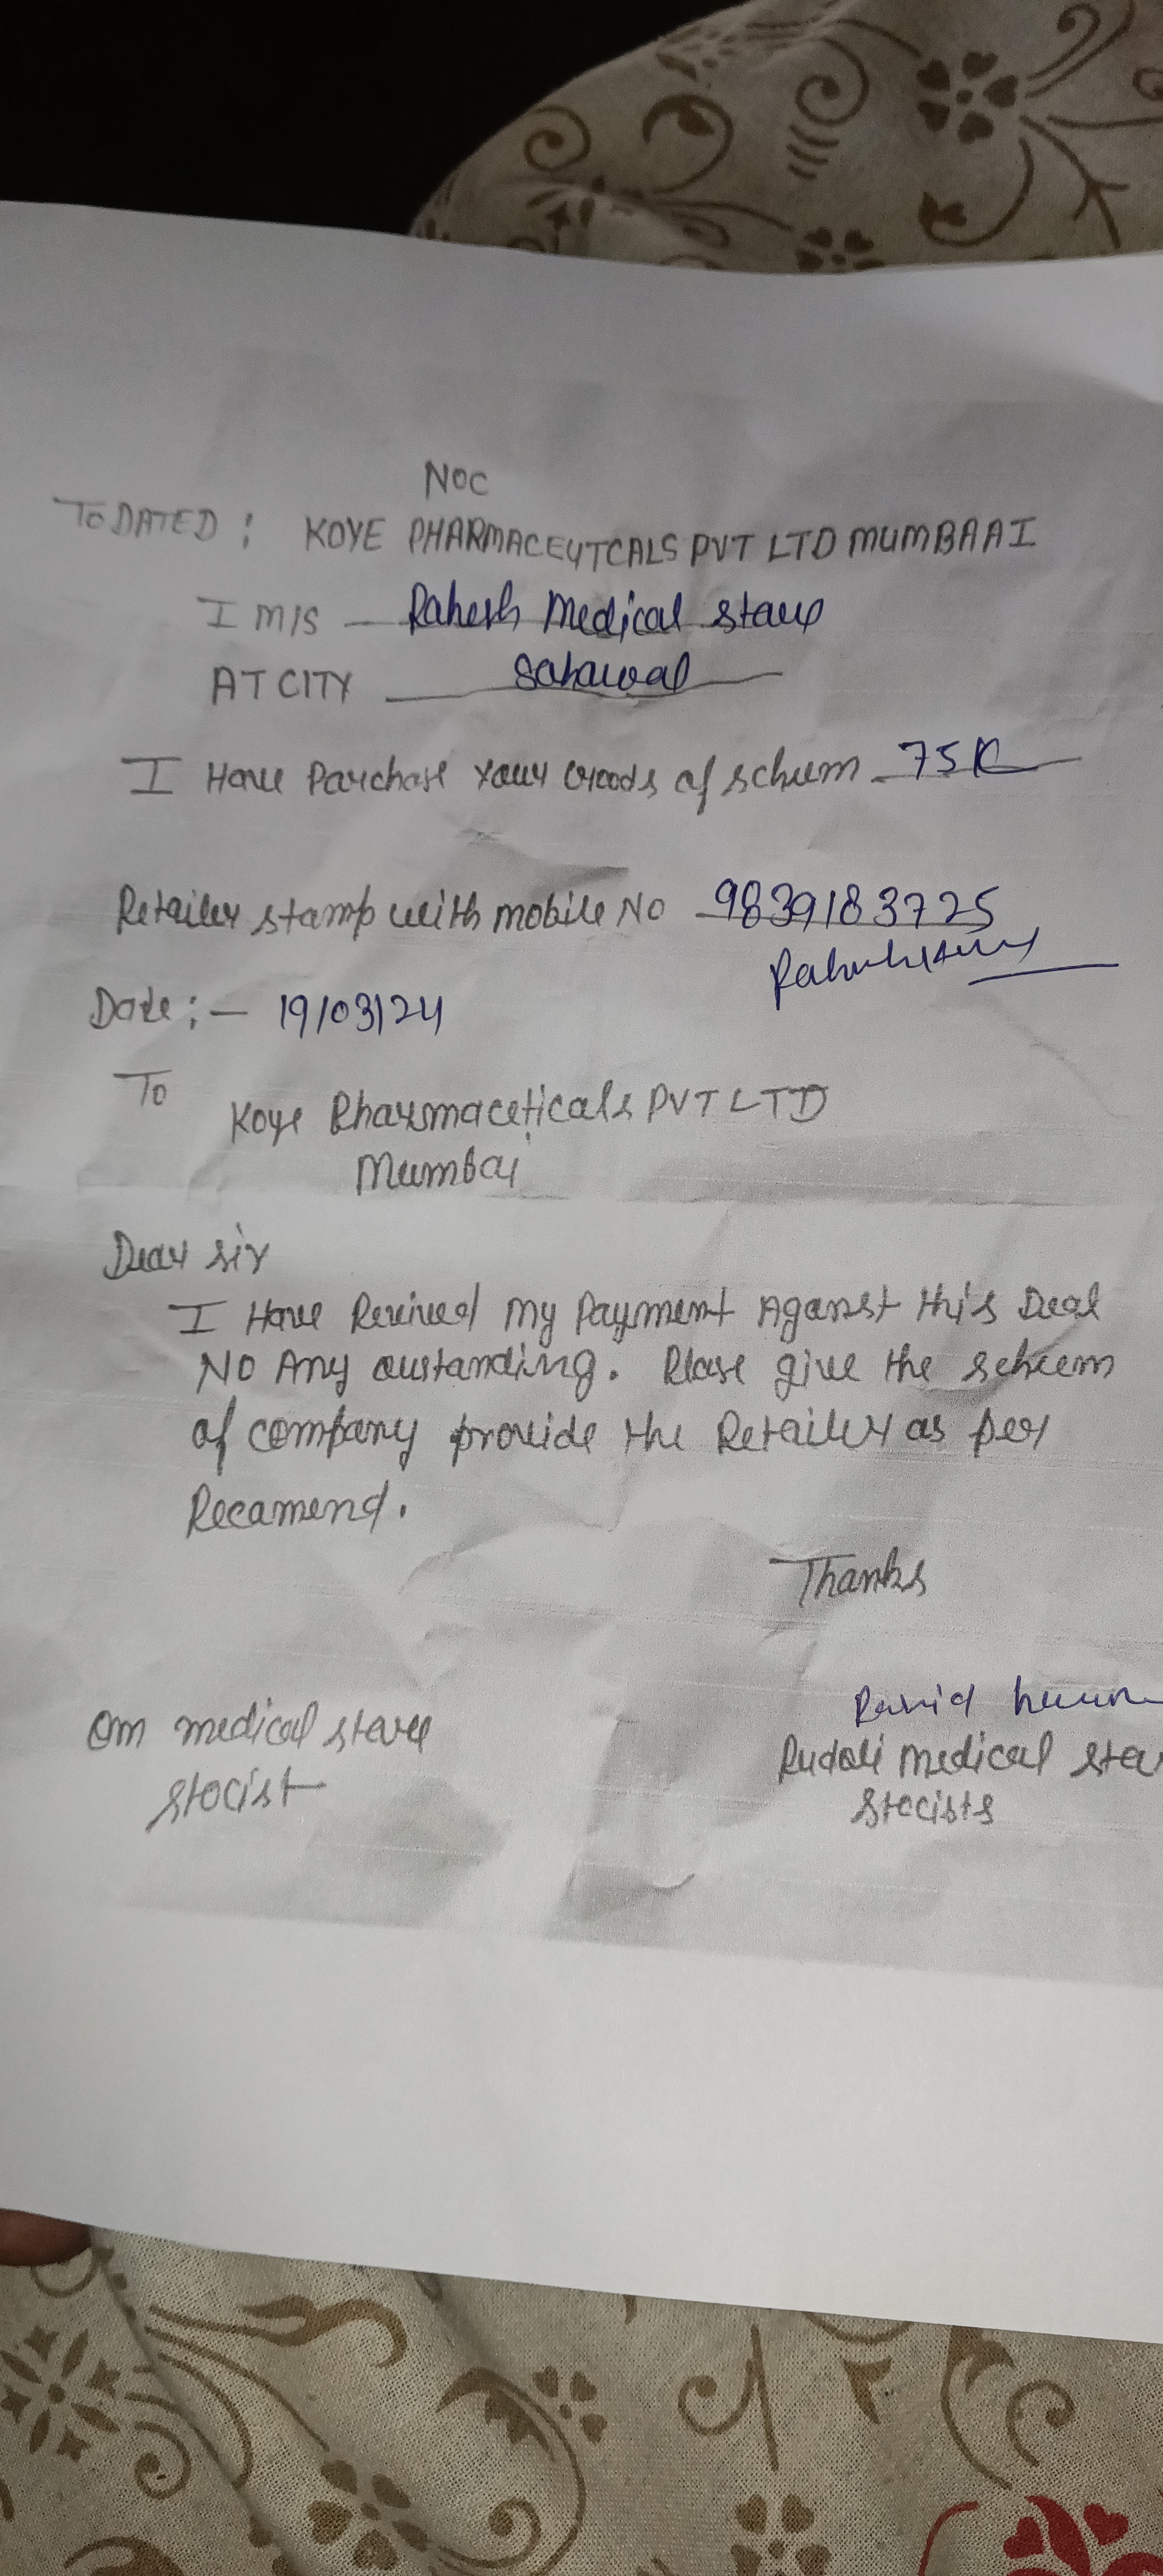 NOC
TO DATED : KOYE PHARMACEUTCALS PVT LTD MUMBAAI
I M/S Rakesh Medical store
AT CITY
I Have Parchase your Goods of scheem 75K
Retailer stamp with mobile No 9839183725
Date :- 19/03/24
To
Koye Pharmaceticals PVT LTD
Mumbai
Dear sir
I Have Recived my Payment Against this Deal
NO Any oustanding. Please give the scheem
of company provide the Retailer as per
Recamend.
Thanks
Om medical store
stocist
Rudali medical
stocists